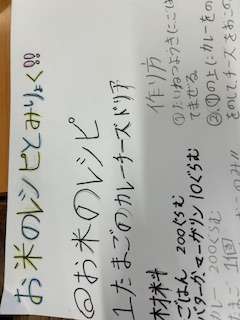 お米のレシピとみりょく!!
@お米のレシピ
1.たまごのカレーチーズドリア
材料
ごはん 200ぐらむ
バターか、マーガリン10ぐらむ
カレー 200ぐらむ
たまご 1個
作り方
①たいねつようきにごは
てまぜる。
②①の上にカレーをの
をのしてチーズをおこの